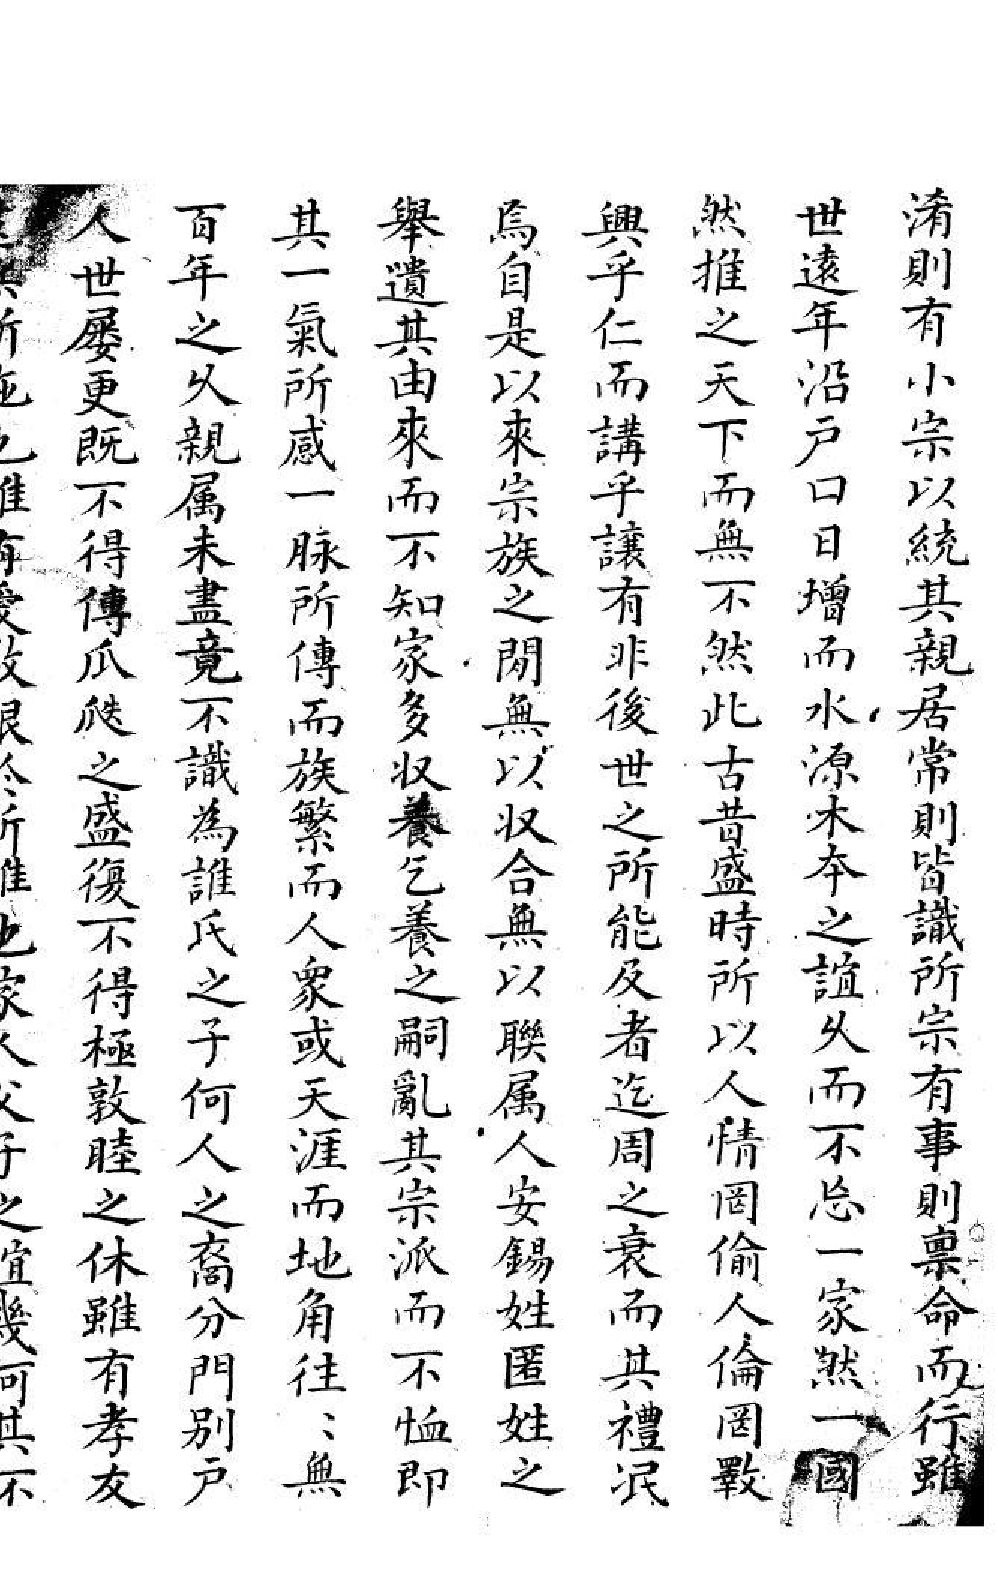 淆則有小宗以統其親居常則皆識所宗有事則稟命而行雖
世遠年沿戶口日增而水源木本之誼久而不忘一家然一國
然推之天下而無不然此古昔盛時所以人情罔偷人倫罔斁
興乎仁而講乎讓有非後世之所能及者迄周之衰而其禮泯
焉自是以來宗族之間無以収合無以聯属人安錫姓匿姓之
舉遺其由來而不知家多収養乞養之嗣亂其宗派而不恤即
其一氣所感一脉所傳而族繁而人衆或天涯而地角往〻無
百年之久親属未盡竟不識為誰氏之子何人之裔分門别戶
人世屡更既不得傳瓜瓞之盛復不得極敦睦之休雖有孝友
所也惟有愛敬根於所也家人父子之誼幾何其不